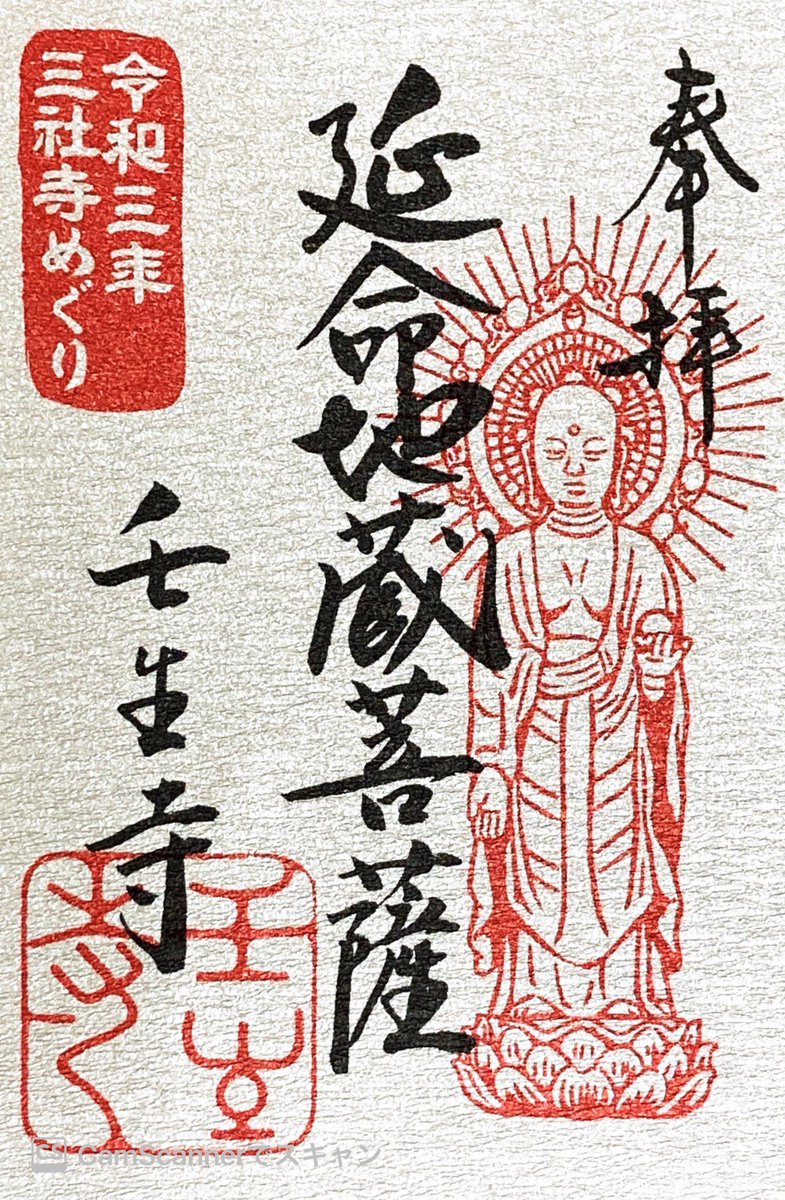 奉拝
延命地蔵菩薩
壬生寺
令和三年
三社寺めぐり
CS CamScannerでスキャン